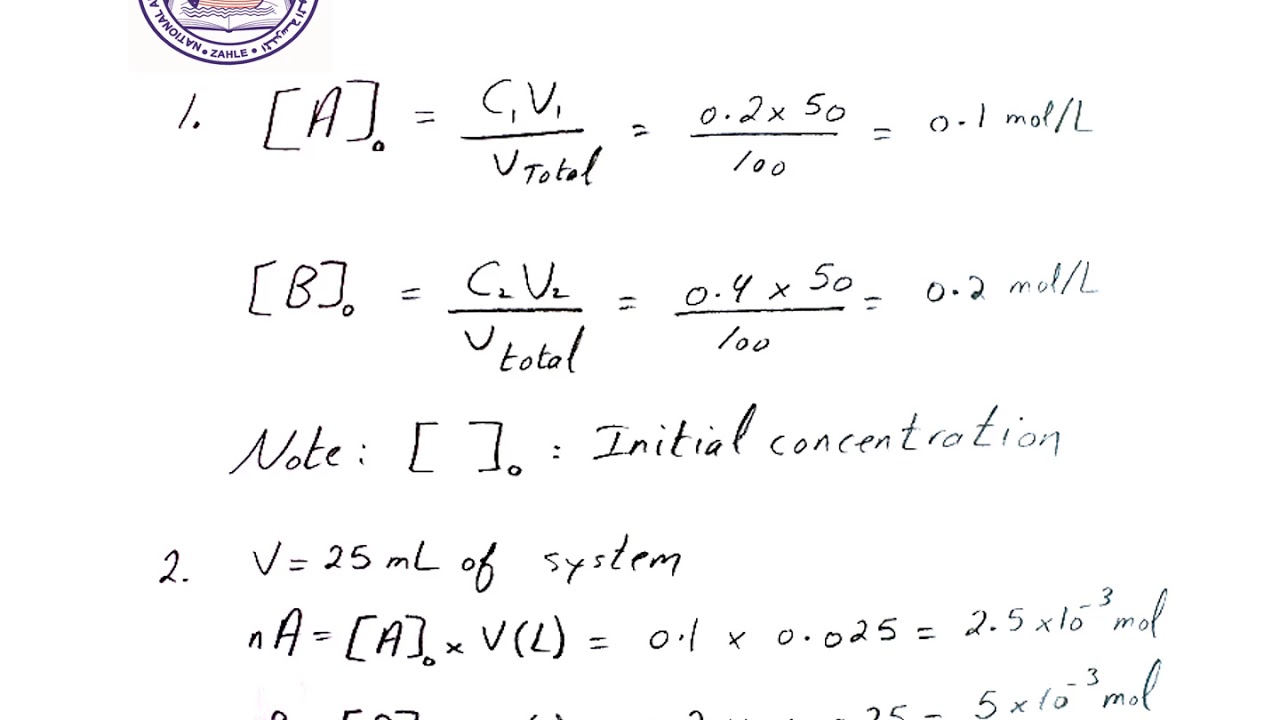 NATIONAL • ZAHLE •
1. [A]₀ = C₁V₁ / V Total = 0.2 x 50 / 100 = 0.1 mol/L
[B]₀ = C₂V₂ / V total = 0.4 x 50 / 100 = 0.2 mol/L
Note: [ ]₀ : Initial concentration
2. V = 25 mL of system
nA = [A]₀ x V(L) = 0.1 x 0.025 = 2.5 x 10⁻³ mol
= 5 x 10⁻³ mol